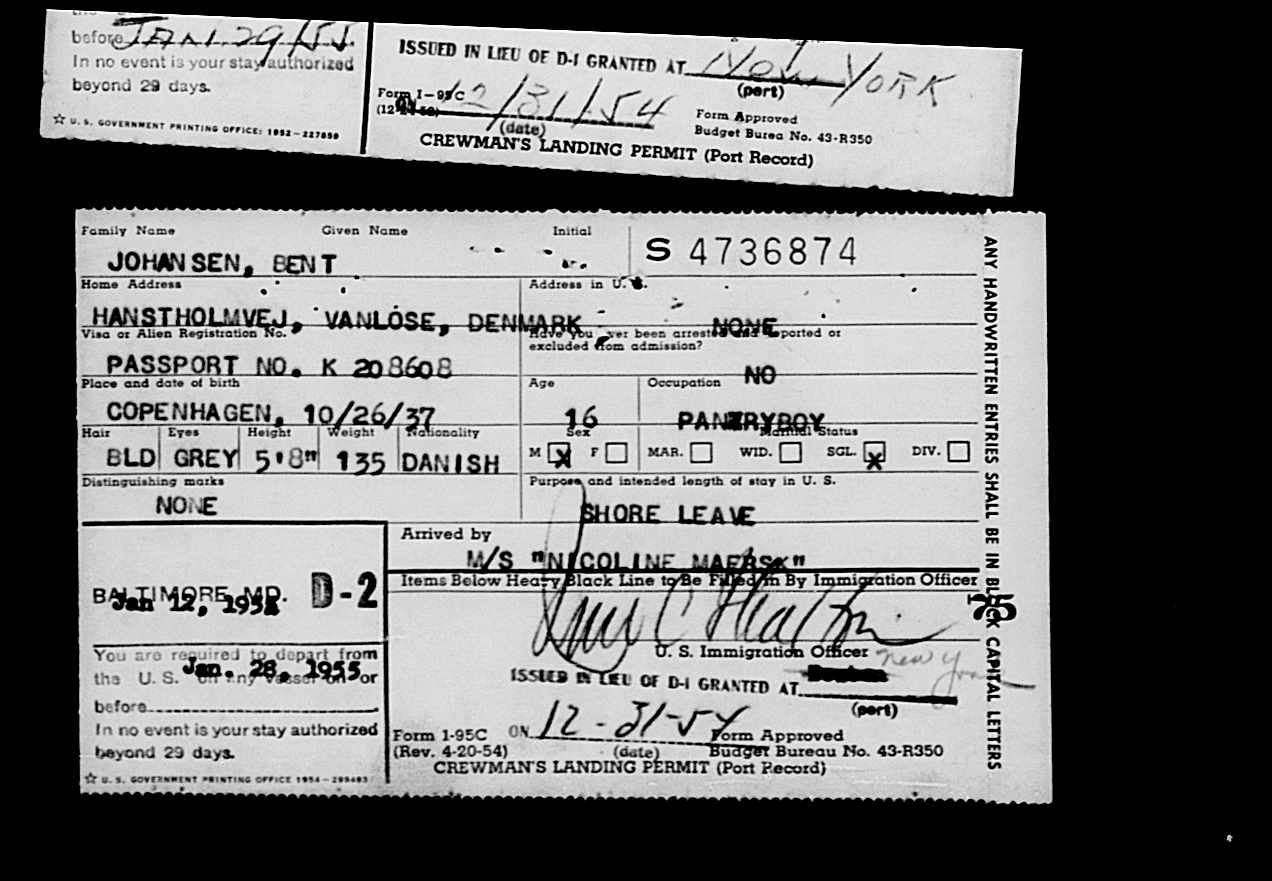 before JAN. 29/55.
In no event is your stay authorized
beyond 29 days.
☆ U. S. GOVERNMENT PRINTING OFFICE: 1952-227850
ISSUED IN LIEU OF D-1 GRANTED AT New YORK
(port)
Form I-95C
ON 12/31/54
(date)
Form Approved
Budget Burea No. 43-R350
CREWMAN'S LANDING PERMIT (Port Record)
Family Name Given Name Initial
JOHANSEN, BENT
S 4736874
Home Address Address in U. S.
HANSTHOLMVEJ, VANLÖSE, DENMARK NONE
Visa or Alien Registration No. Have you ever been arrested and deported or
excluded from admission?
PASSPORT NO. K 208608 NO
Place and date of birth Age Occupation
COPENHAGEN, 10/26/37 16 PANTRYBOY
Hair Eyes Height Weight Nationality Sex Marital Status
BLD GREY 5'8" 135 DANISH M X F MAR. WID. SGL. X DIV.
Distinguishing marks Purpose and intended length of stay in U. S.
NONE SHORE LEAVE
Arrived by
M/S "NICOLINE MAERSK"
Items Below Heavy Black Line to Be Filled in By Immigration Officer
BALTIMORE, MD. D-2
Jan 12, 1955
You are required to depart from
the U. S. on any vessel on or
Jan. 28, 1955
before
In no event is your stay authorized
beyond 29 days.
☆ U. S. GOVERNMENT PRINTING OFFICE 1954-295493
U. S. Immigration Officer
ISSUED IN LIEU OF D-1 GRANTED AT New York
(port)
Form I-95C ON 12-31-54 Form Approved
(Rev. 4-20-54) (date) Budget Bureau No. 43-R350
CREWMAN'S LANDING PERMIT (Port Record)
ANY HANDWRITTEN ENTRIES SHALL BE IN BLOCK CAPITAL LETTERS
75